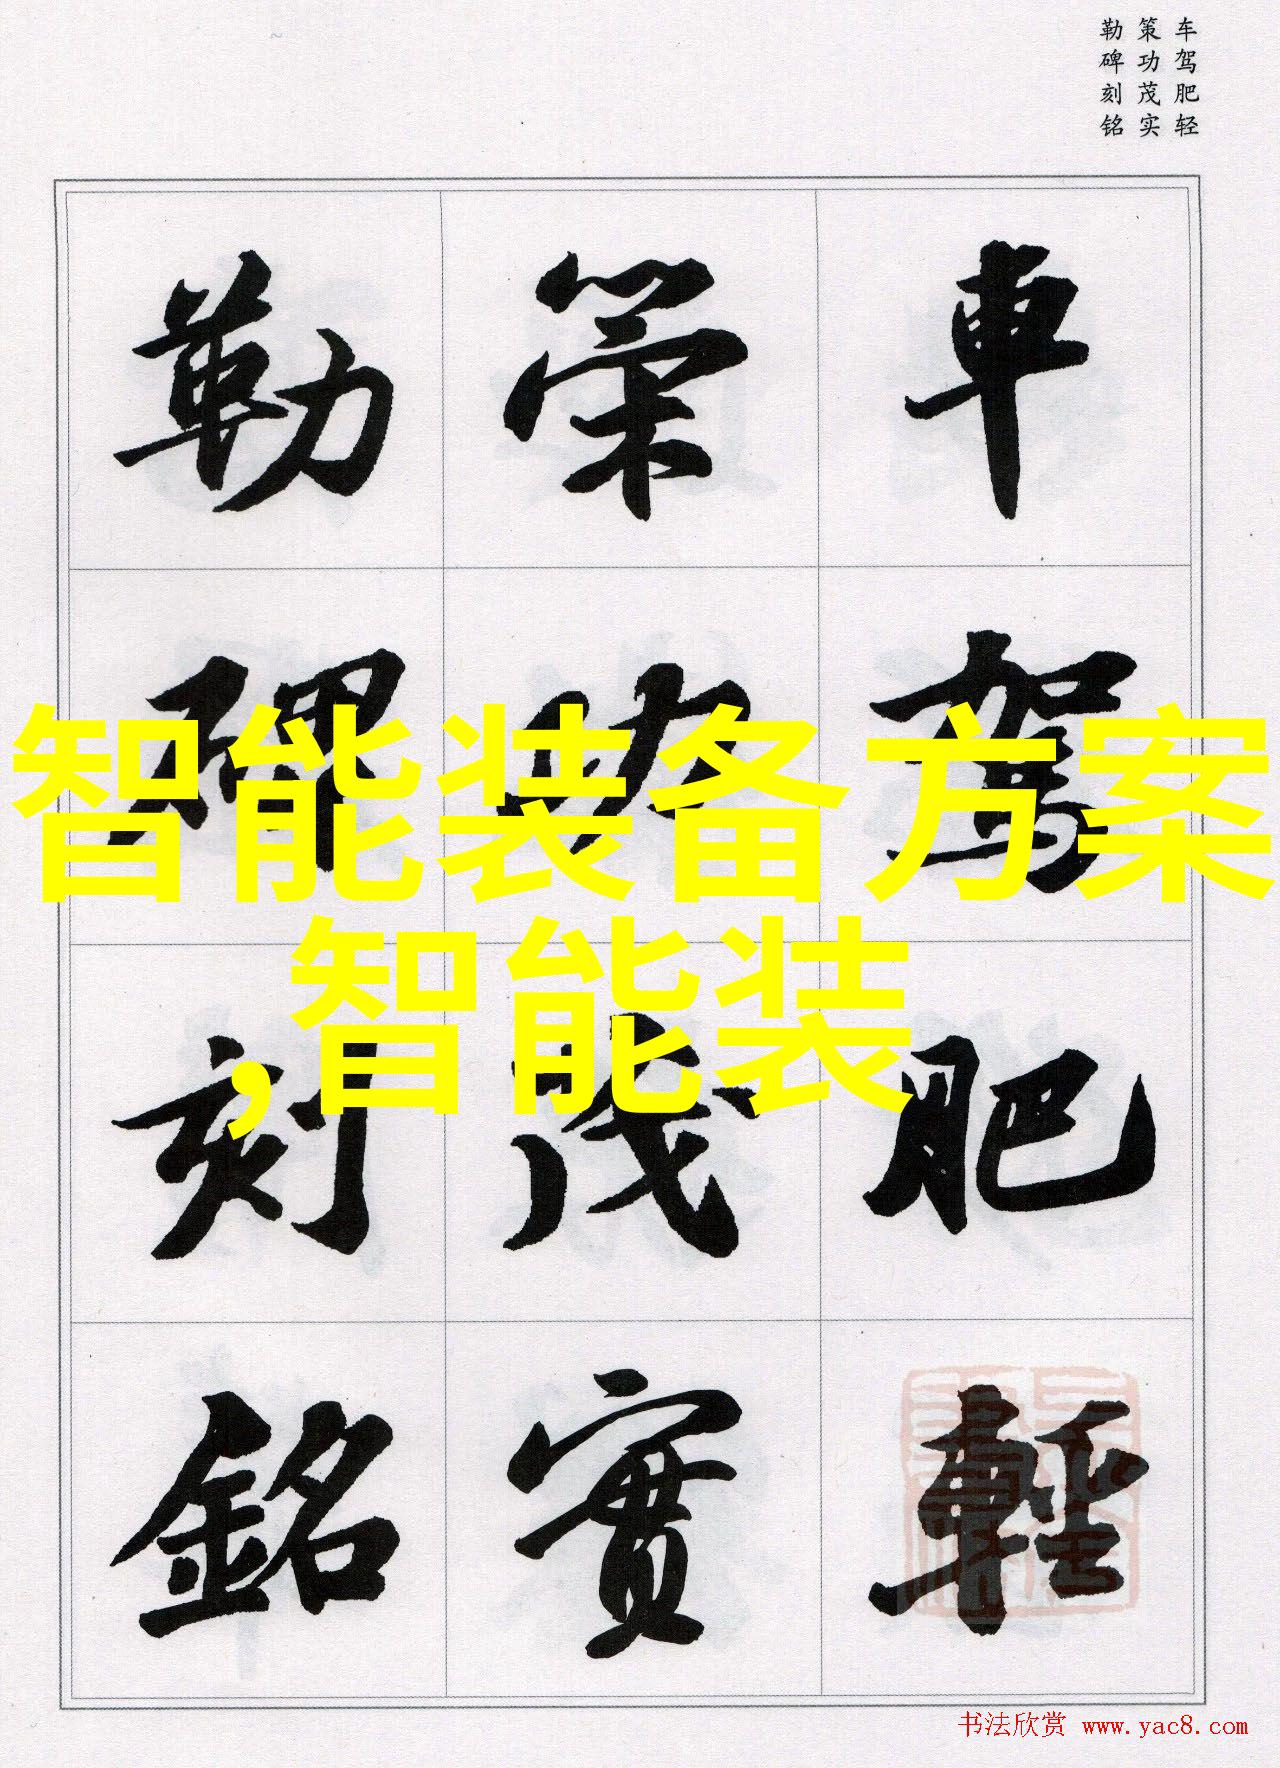 车驾肥轻
策功茂实
勒碑刻铭
車駕肥輕
策功茂實
勒碑刻銘
智能装备方案
,智能装
书法欣赏 www.yac8.com